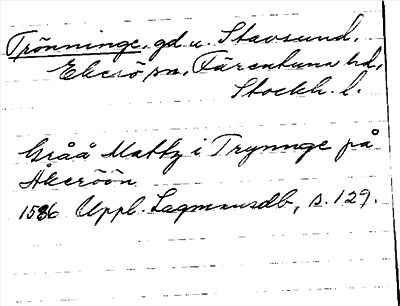 Trönninge, gd u. Stavsund,
Ekerö sn, Färentuna hd,
Stockh. l.
Gråå Mattz i Trynnge på
Åkeröön
1586 Uppl. Lagmansdb, s. 129.